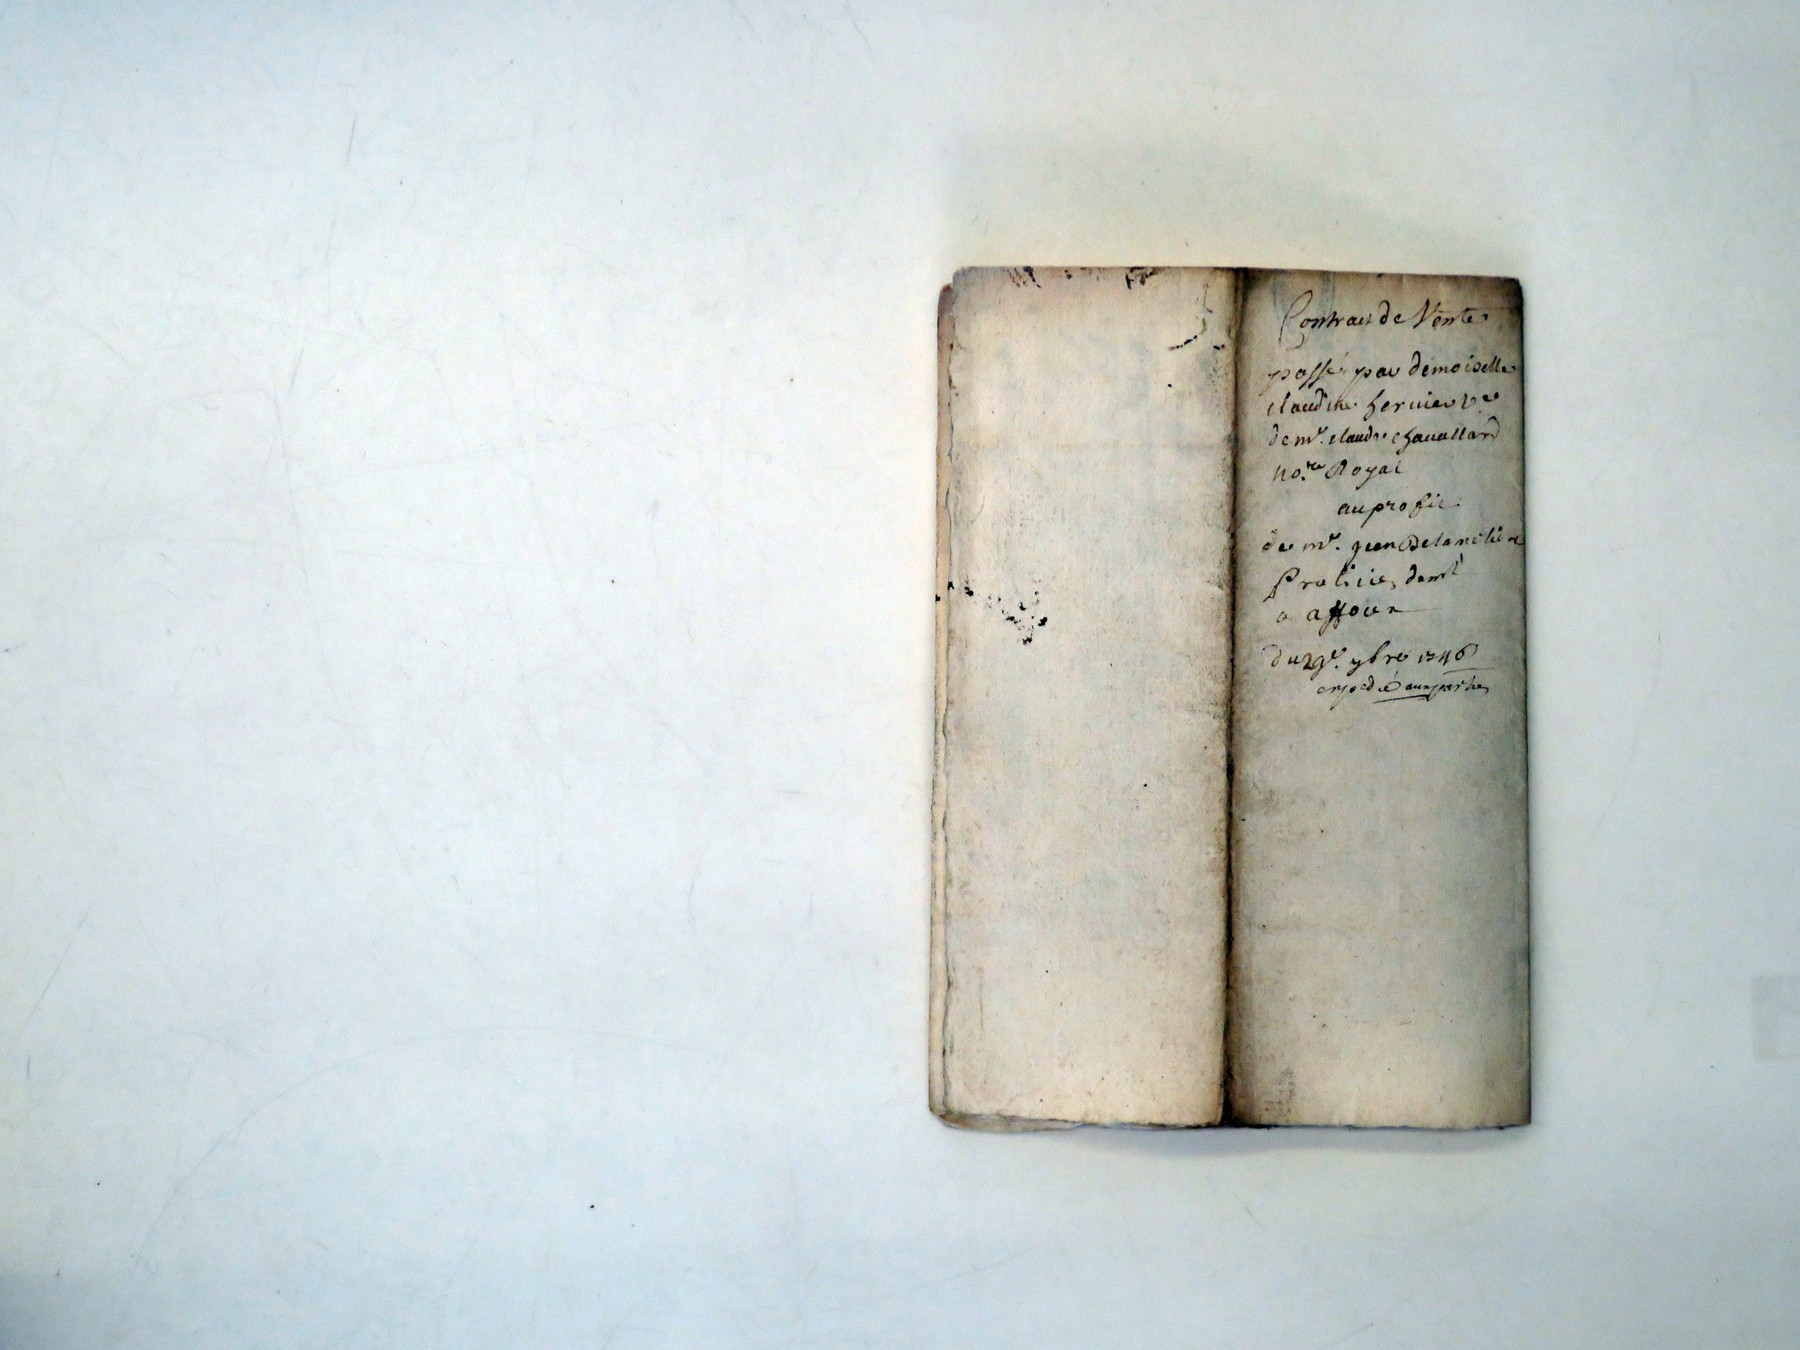 Contrat de Vente
passé par demoiselle
claudine ferrier ve
de mr. claude chavallard
nore. Royal
au profit
de mr. jean Delamoliere
Praticien demt
a affoux
du 29e. 9bre 1746
expedié aux parties